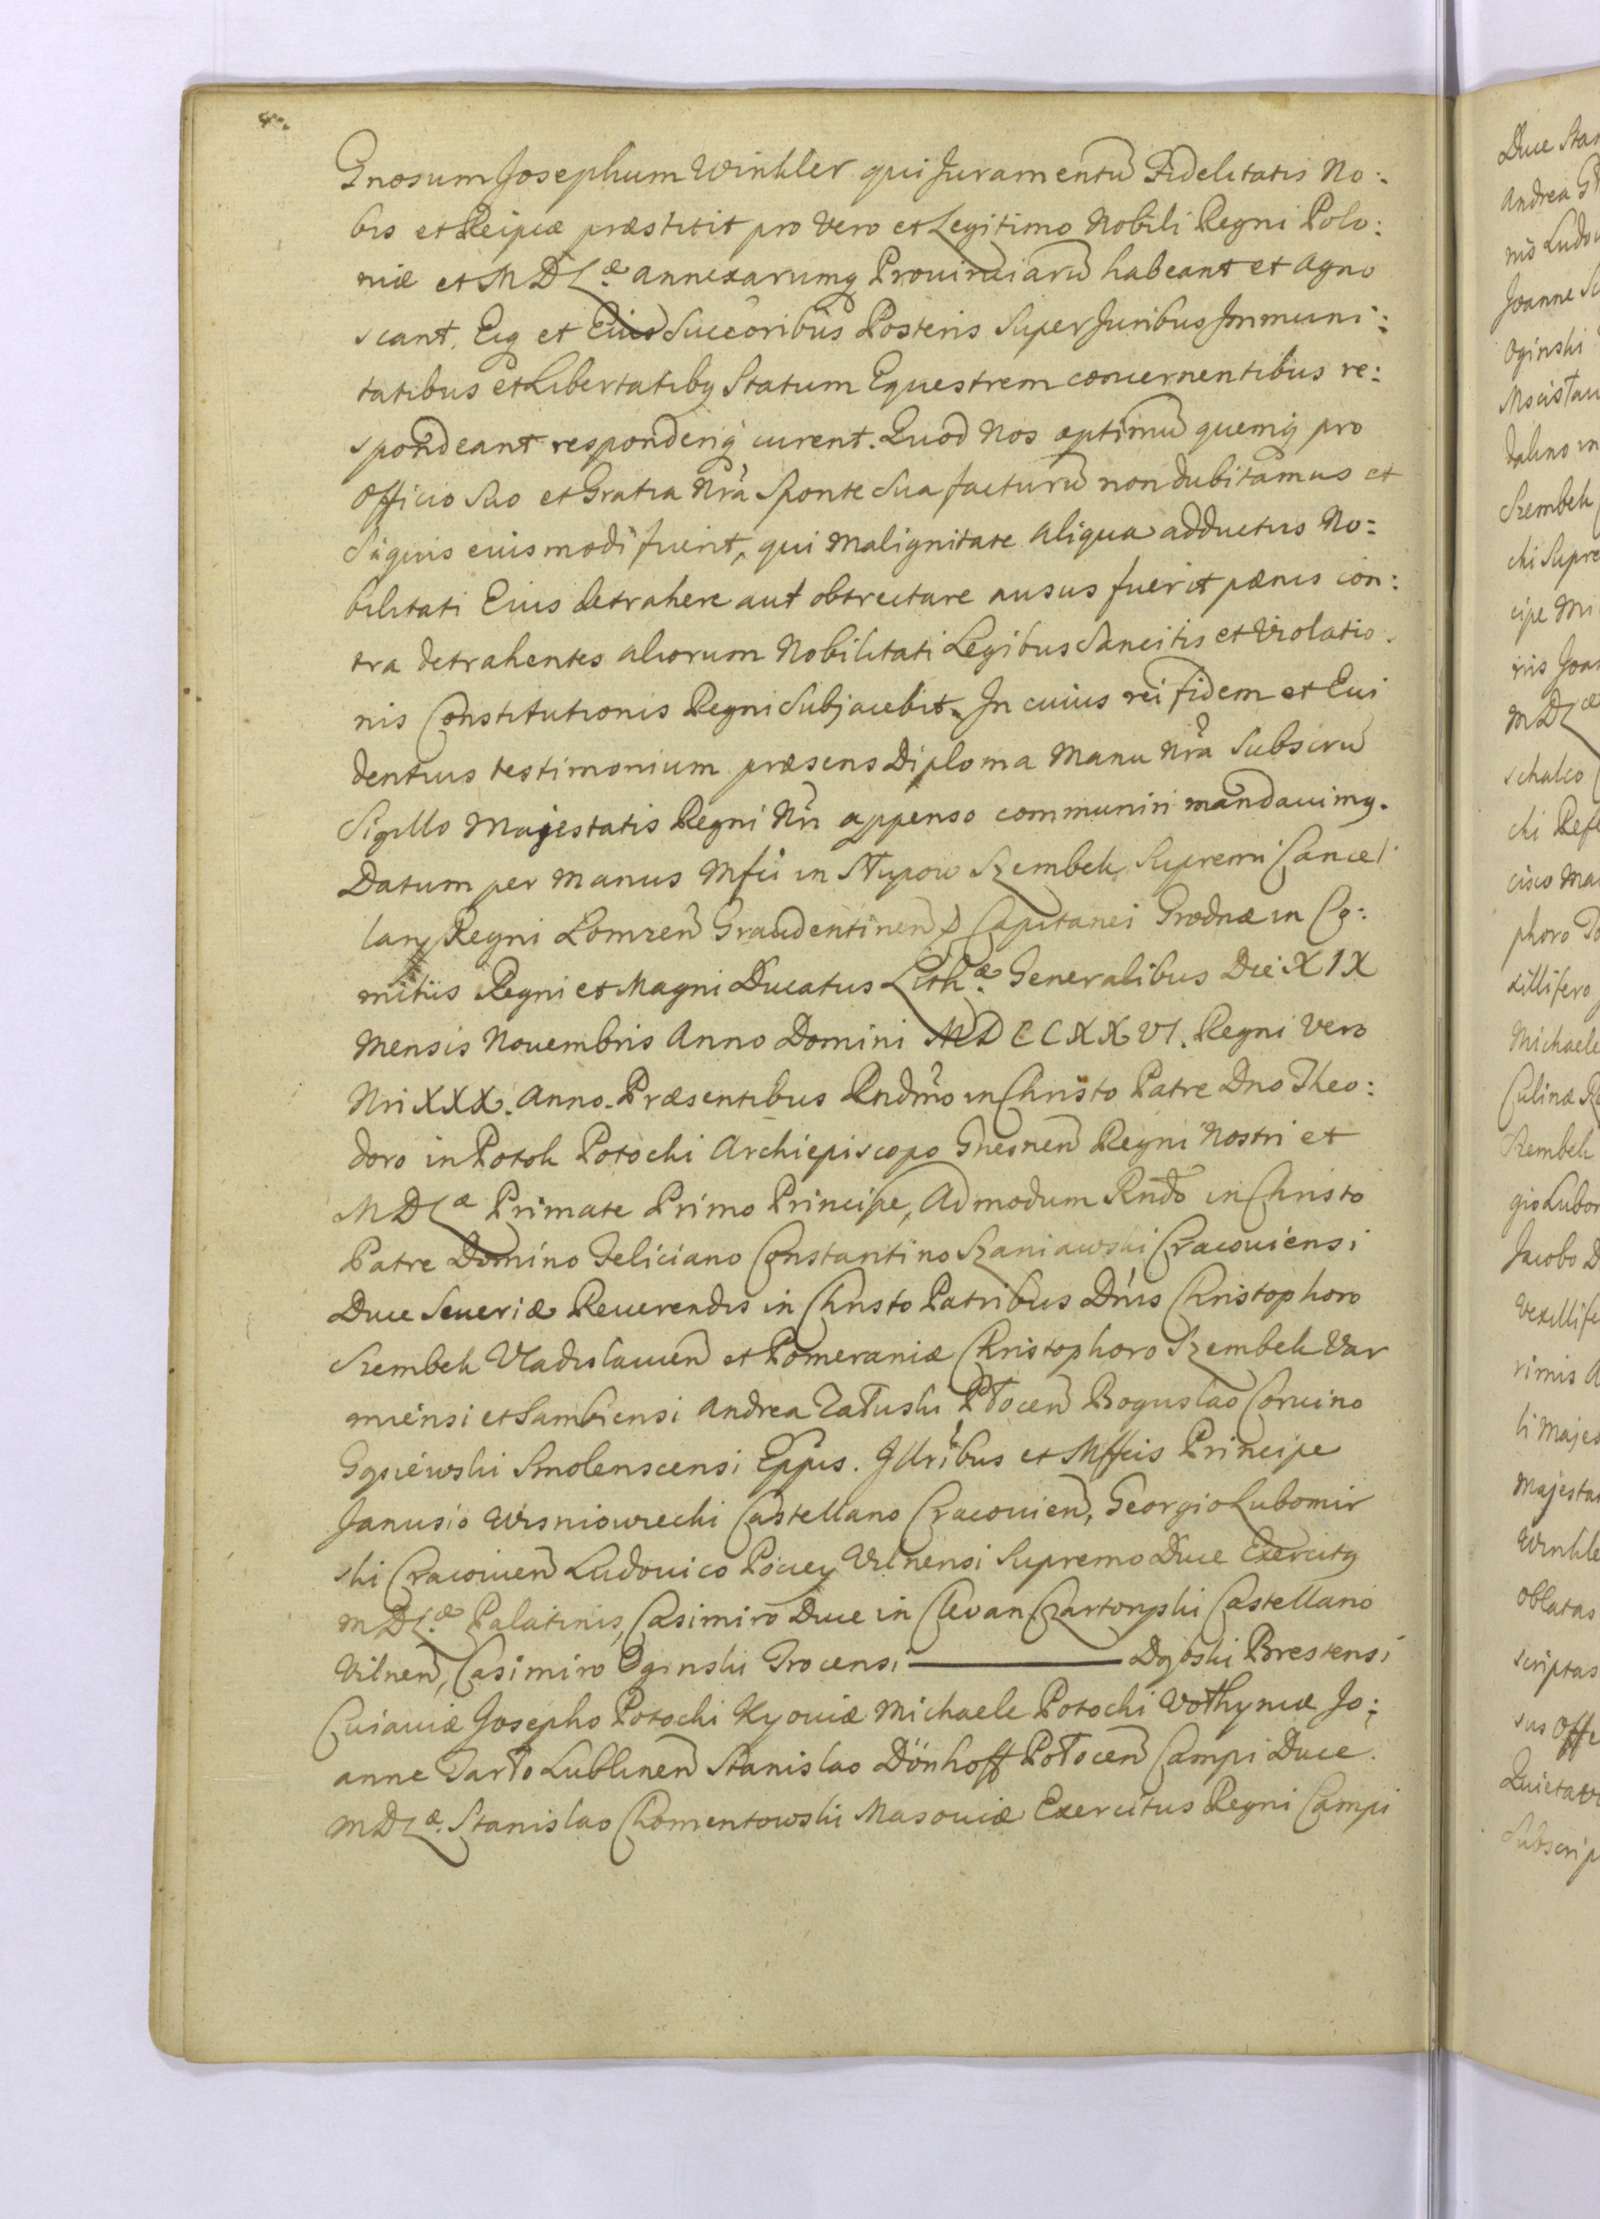 4.
Gnosum Josephum Winkler qui Juramentū Fidelitatis No:
bis et Reipcæ præstitit pro vero et Legitimo Nobili Regni Polo:
niæ et M D L.æ annexarumq Prouinciarū habeant et agno
scant, Eiq et Eius Succoribus Posteris Super Juribus Immuni:
tatibus et Libertatibq Statum Equestrem concernentibus re:
spondeant responderiq curent. Quod Nos optimū quemq pro
Officio Suo et Gratia Nrā Sponte Sua facturū non dubitamus et
Siquis eiusmodi fuerit, qui Malignitate aliqua adductus No:
bilitati Eius detrahere aut obtrectare ausus fuerit pænis con:
tra detrahentes aliorum Nobilitati Legibus Sancitis et Violatio.
nis Constitutionis Regni Subjacebit. In cuius rei fidem et Eui
dentius testimonium præsens Diploma Manu Nrā Subscru
Sigillo Majestatis Regni Nri appenso communiri mandauimq.
Datum per Manus Mfci in Słupow Szembek Supremi Cancel
larij Regni Lomzen Graudentinen Capitanei Grodnæ in Co:
mitiis Regni et Magni Ducatus Lith.æ Generalibus Die XIX
Mensis Nouembris Anno Domini MDCCXXVI. Regni Vero
Nri XXX. Anno. Præsentibus Rndmo in Christo Patre Dno Theo:
doro in Potok Potocki Archiepiscopo Gnesnen Regni Nostri et
M D L æ Primate Primo Principe, Admodum Rndo in Christo
Patre Domino Feliciano Constantino Szaniawski Cracouiensi
Duce Seueriæ Reuerendis in Christo Patribus Dnis Christophoro
Szembek Vladislauien et Pomeraniæ Christophoro Szembek Var
miensi et Sambiensi Andrea Załuski Płocen Boguslao Coruino
Gąsiewski Smolenscensi Eppis. Illribus et Mffcis Principe
Janusio Wisniowiecki Castellano Cracouien, Georgio Lubomir
ski Cracouien Ludouico Pociey Vilnensi Supremo Duce Exercitq
M D L.æ Palatinis, Casimiro Duce in Clevan Czartoryski Castellano
Vilnen, Casimiro Oginski Trocensi ——— Dąbski Brestensi
Cuiauiæ Josepho Potocki Kyouiæ Michaele Potocki Vołhyniæ Jo:
anne Tarło Lublinen Stanislao Dönhoff Połocen Campi Duce.
M D L æ. Stanislao Chomentowski Masouiæ Exercitus Regni Campi
Duce Stan
Andrea
nis Ludou
Joanne
Oginski
Mscisłau
dalino in
Szembek
cki Supre
cipe
nis Joa
M D L æ
schalco
cki Refe
cisco Ma
phoro
xillifero
Michaele
Culinæ
Szembek
gio Lubo
Jacobo D
Vexillife
rimis
li Majes
Majesta
Winkle
Oblatas
scriptas
sus Offi
Subscrip